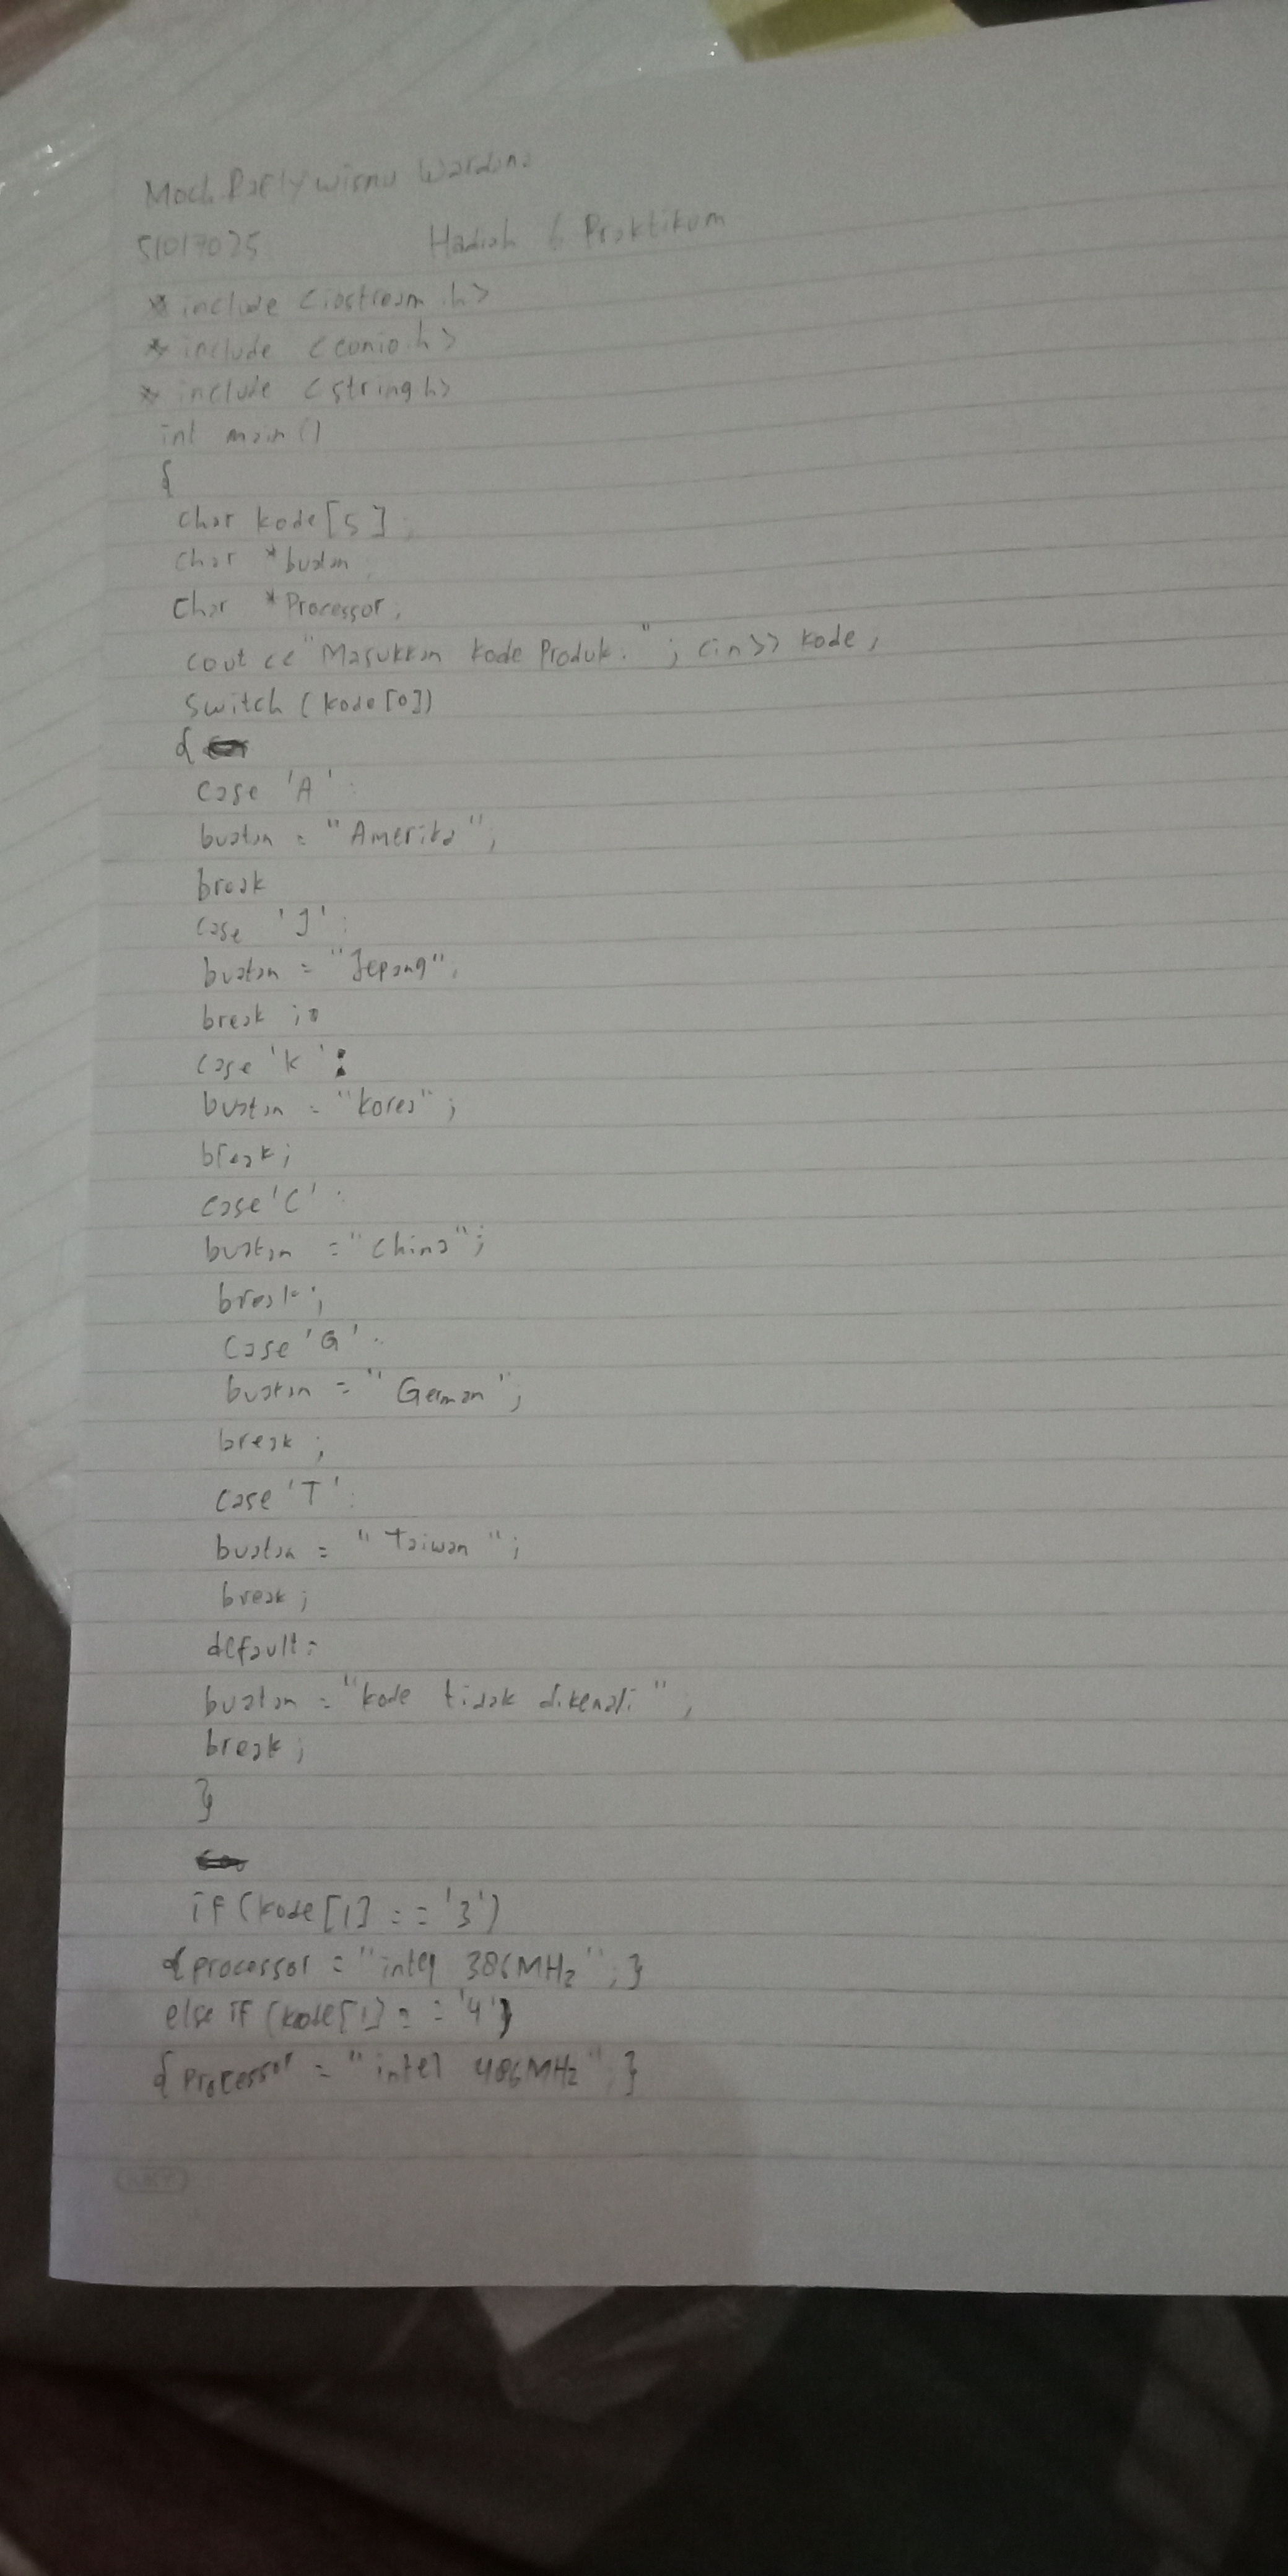 Moch. Rafly wisnu Wardana
51017025 Hadiah 6 Praktikum
# include <iostream.h>
# include <conio.h>
# include <string.h>
int main()
{
char kode[5];
char *buatan;
char *Processor;
cout << "Masukkan kode Produk: "; cin>> kode;
switch (kode[0])
{
case 'A':
buatan = "Amerika";
break
case 'J':
buatan = "Jepang";
break;
case 'K':
buatan = "korea";
break;
case 'C':
buatan = "china";
break;
case 'G':
buatan = "German";
break;
case 'T':
buatan = "Taiwan";
break;
default:
buatan = "kode tidak dikenali";
break;
}
if (kode[1] == '3')
{processor = "intel 386MHz"; }
else if (kode[1] == '4')
{Processor = "intel 486MHz"; }